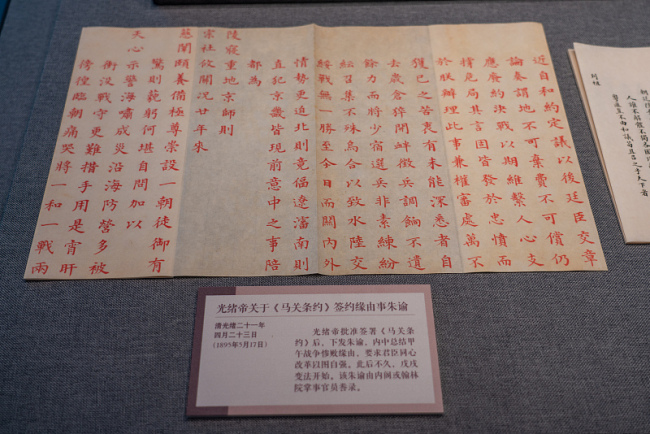 近自和約定議以後廷臣交章
論奏謂地不可棄費不可償仍
應廢約決戰以期維繫人心支
撐危局其言固皆發於忠憤而
於朕辦理此事兼權審處萬不
獲已之苦衷有未能深悉者自
去歲倉猝開衅徵兵調餉不遺
餘力而將少宿選兵非素練紛
紜召集不殊烏合以致水陸交
綏戰無一勝至今日而關內外
情勢更迫北則竟偪遼瀋南則
直犯京畿皆現前意中之事陪
都為
陵寢重地京師則
宗社攸關況廿年來
慈闈頤養備極尊崇設一朝徒御有
驚則藐躬何堪自問加以
天心示警海嘯成災沿海防營多被
衝沒戰守更難措手用是宵旰
徬徨臨朝痛哭將一和一戰兩
光绪帝关于《马关条约》签约缘由事朱谕
清光绪二十一年
四月二十三日
(1895年5月17日)
光绪帝批准签署《马关条
约》后,下发朱谕,内中总结甲
午战争惨败缘由,要求君臣同心
改革以图自强。此后不久,戊戌
变法开始。该朱谕由内阁或翰林
院掌事官员誊录。